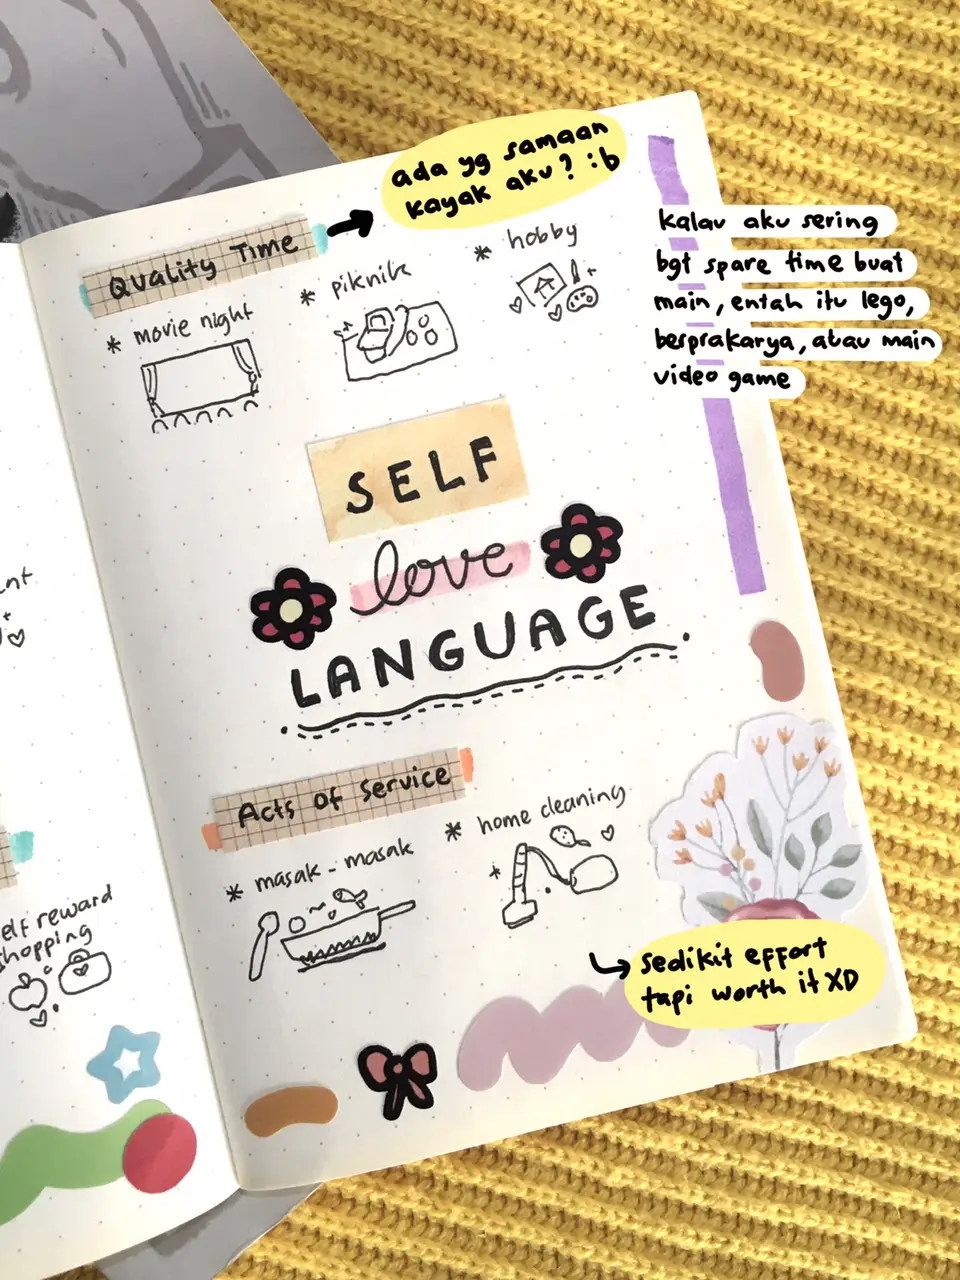 ada yg samaan
kayak aku? :b
Quality Time
* movie night
* piknik
* hobby
kalau aku sering
bgt spare time buat
main, entah itu lego,
berprakarya, atau main
video game
SELF
love
LANGUAGE
Acts of service
* masak - masak
* home cleaning
sedikit effort
tapi worth it XD
elf reward
shopping